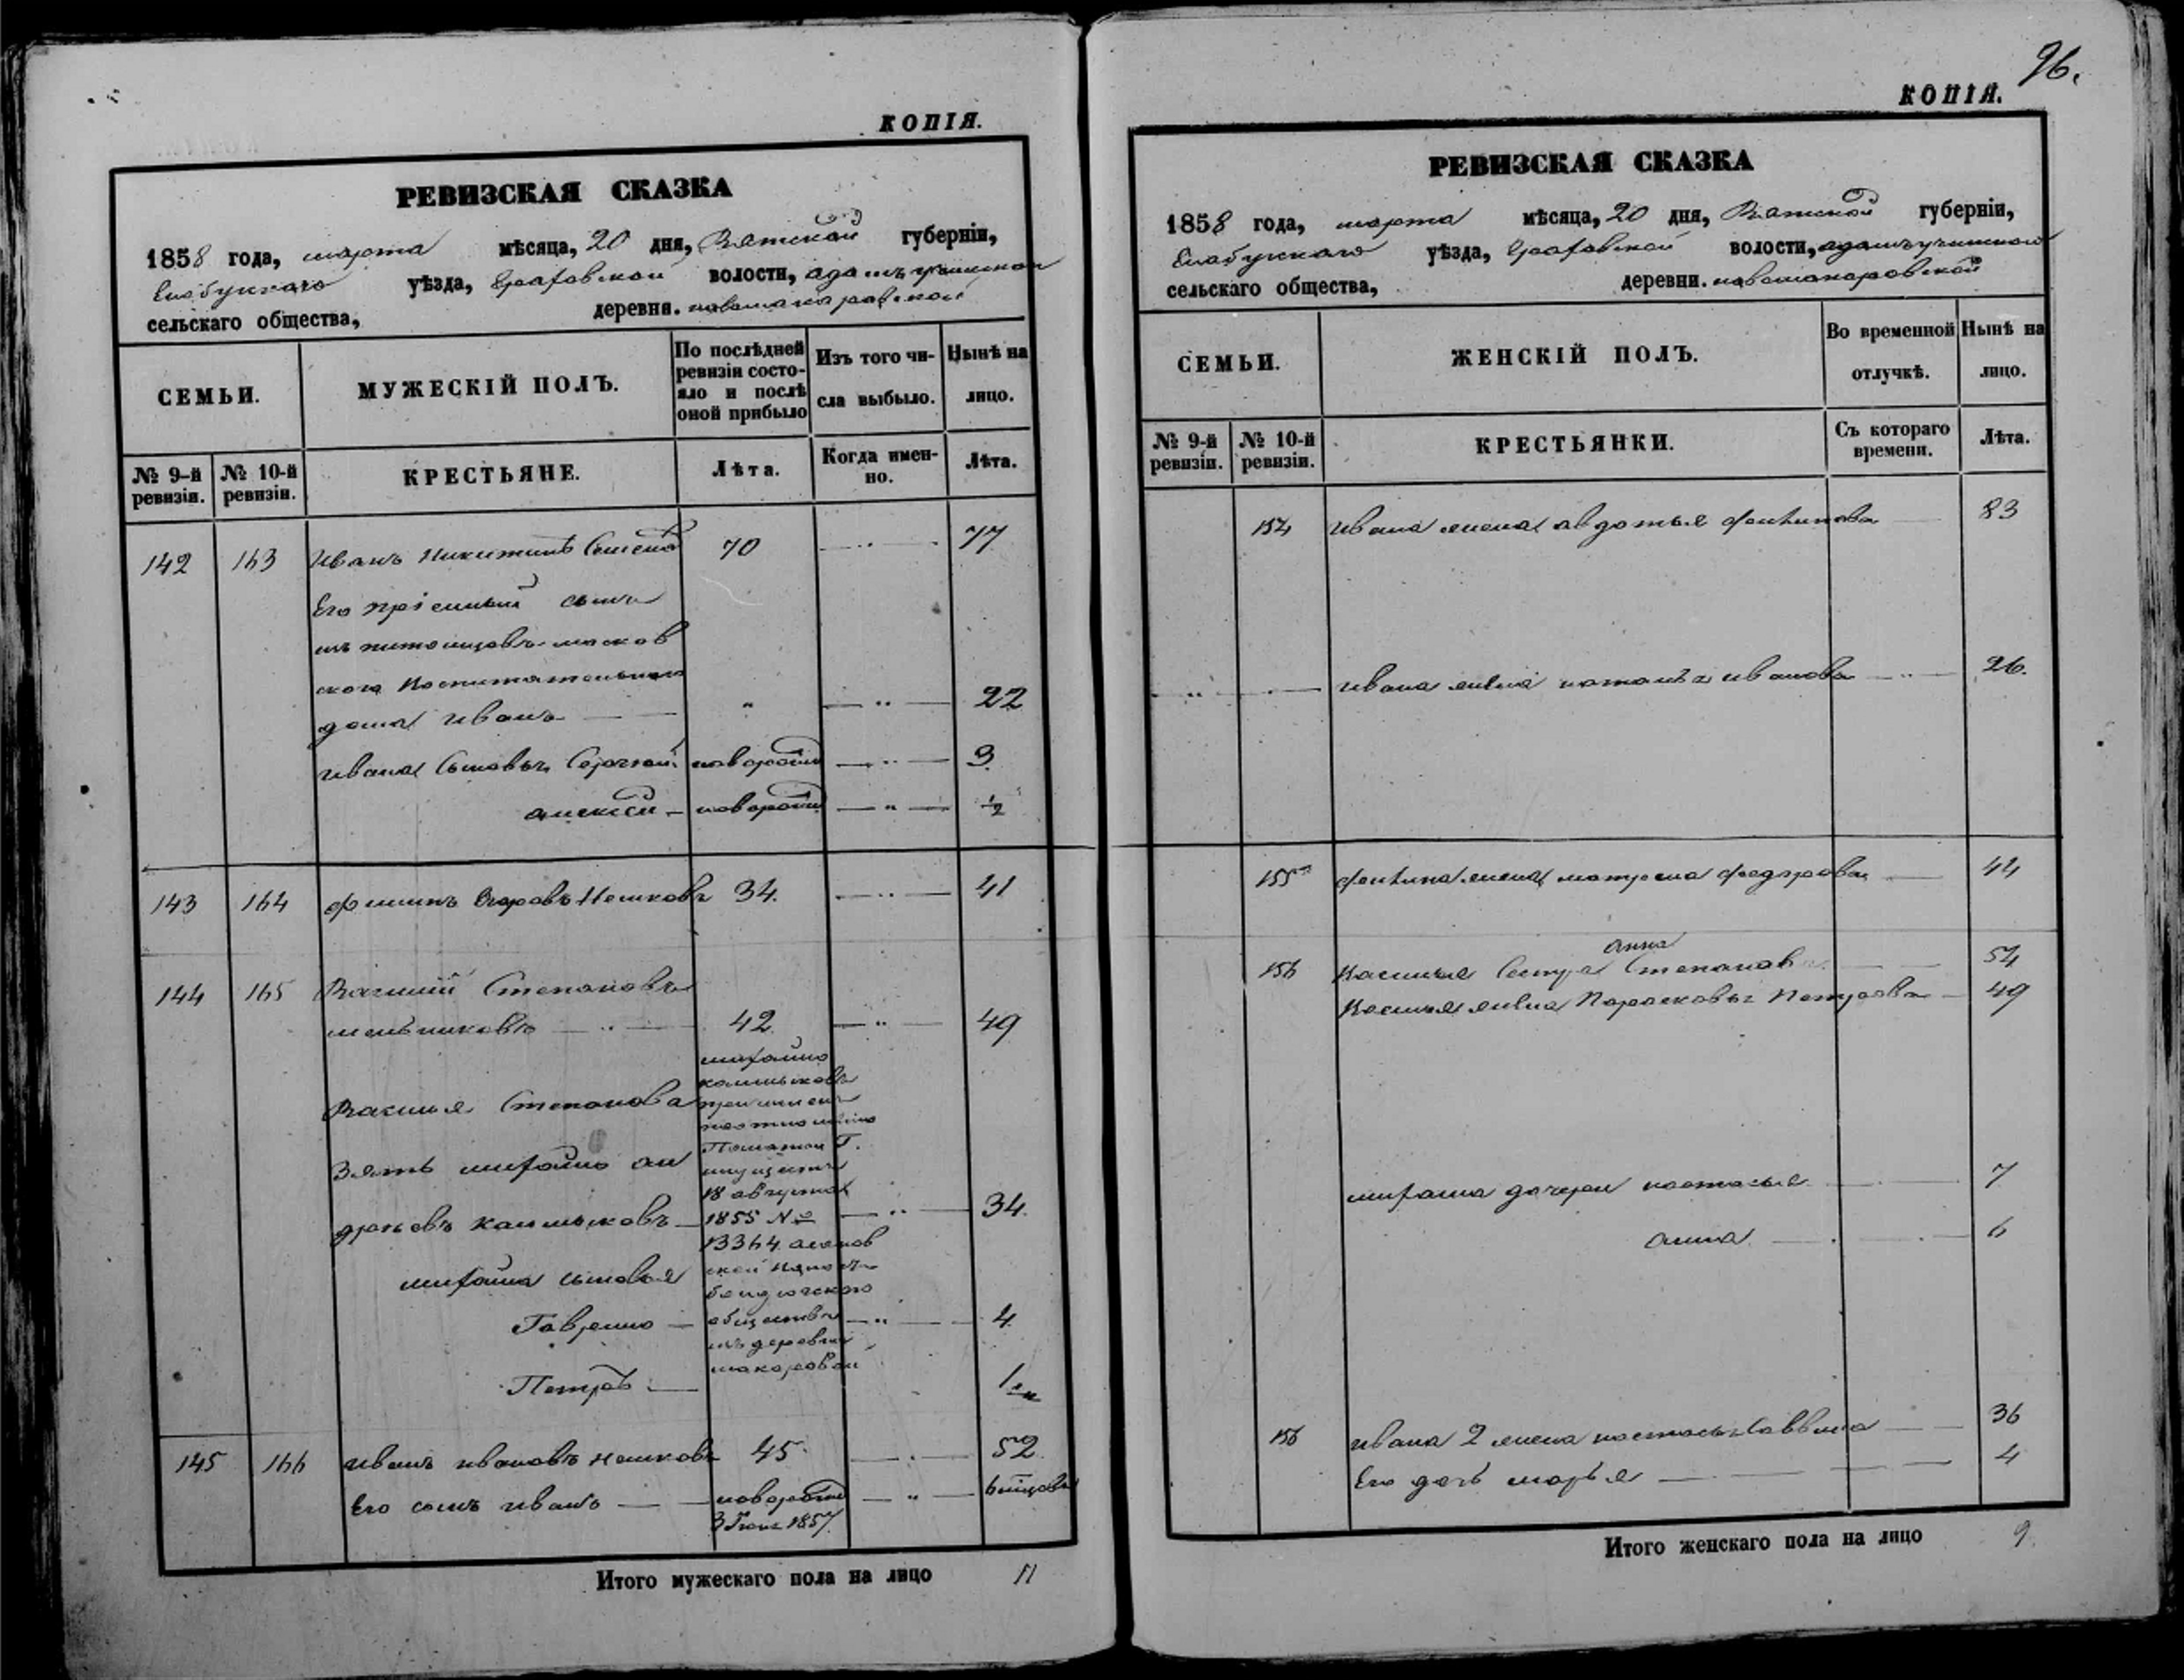 КОПІЯ.
РЕВИЗСКАЯ СКАЗКА
1858 года, марта мѣсяца, 20 дня, Вятской губерніи,
Елабужскаго уѣзда, Граховской волости,
сельскаго общества, деревни. новомакаровской
СЕМЬИ.
МУЖЕСКІЙ ПОЛЪ.
По послѣдней ревизіи состояло и послѣ оной прибыло
Изъ того числа выбыло.
Нынѣ на лицо.
№ 9-й ревизіи.
№ 10-й ревизіи.
КРЕСТЬЯНЕ.
Лѣта.
Когда именно.
Лѣта.
142 163 Иванъ Никитинъ 70 77
Его пріемный сынъ
изъ питомцовъ москов
скаго Воспитательнаго
дома Иванъ " 22
Ивана Сыновья Сергѣй новорож 3
Алексѣй новорож ½
143 164 Филипъ Егоровъ Пешковъ 34. 41
144 165 Василій Степановъ
мельниковъ 42. 49
Василья Степанова
Зять михайло ан
дреевъ калмыковъ 34.
михайло
калмыковъ
причислен
18 августа
1855 №
13364
общества
изъ деревни
макаровой
михайла сыновья
Гаврило 4
Петръ 1
145 166 Иванъ Ивановъ Пешковъ 45 52
Его сынъ Иванъ новорож
1857. 6 мѣсяц
Итого мужескаго пола на лицо 11
96.
КОПІЯ.
РЕВИЗСКАЯ СКАЗКА
1858 года, марта мѣсяца, 20 дня, Вятской губерніи,
Елабужскаго уѣзда, Граховской волости,
сельскаго общества, деревни. новомакаровской
СЕМЬИ.
ЖЕНСКІЙ ПОЛЪ.
Во временной отлучкѣ.
Нынѣ на лицо.
№ 9-й ревизіи.
№ 10-й ревизіи.
КРЕСТЬЯНКИ.
Съ котораго времени.
Лѣта.
154 Ивана жена авдотья 83
Ивана жена наталья иванова 26.
155 жена матрена федорова 44
анна
156 Василья Сестра Степанова 54
Василья жена Парасковья Петрова 49
михаила дочери настасья 7
анна 6
156 Ивана 2 жена настасья Саввина 36
Его дочь марья 4
Итого женскаго пола на лицо 9.